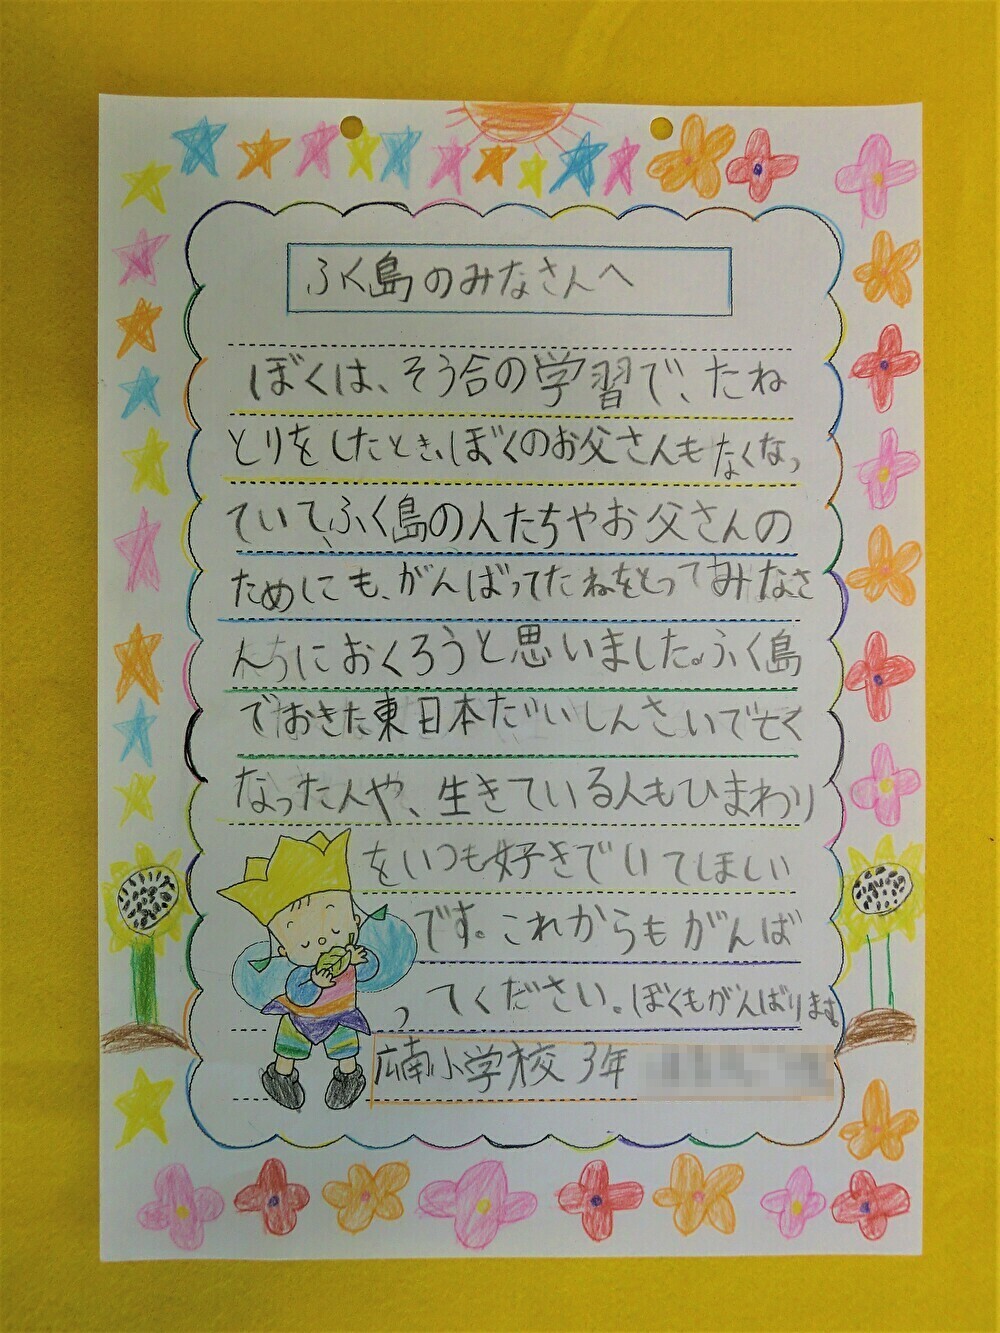 ふく島のみなさんへ
ぼくは、そう合の学習で、たね
とりをしたとき、ぼくのお父さんもなくなっ
ていて、ふく島の人たちやお父さんの
ためしても、がんばってたねをとってみなさ
んちにおくろうと思いました。ふく島
でおきた東日本だいしんさいで亡く
なった人や、生きている人もひまわり
をいつも好きでいてほしい
です。これからもがんば
ってください。ぼくもがんばります。
広南小学校 3年